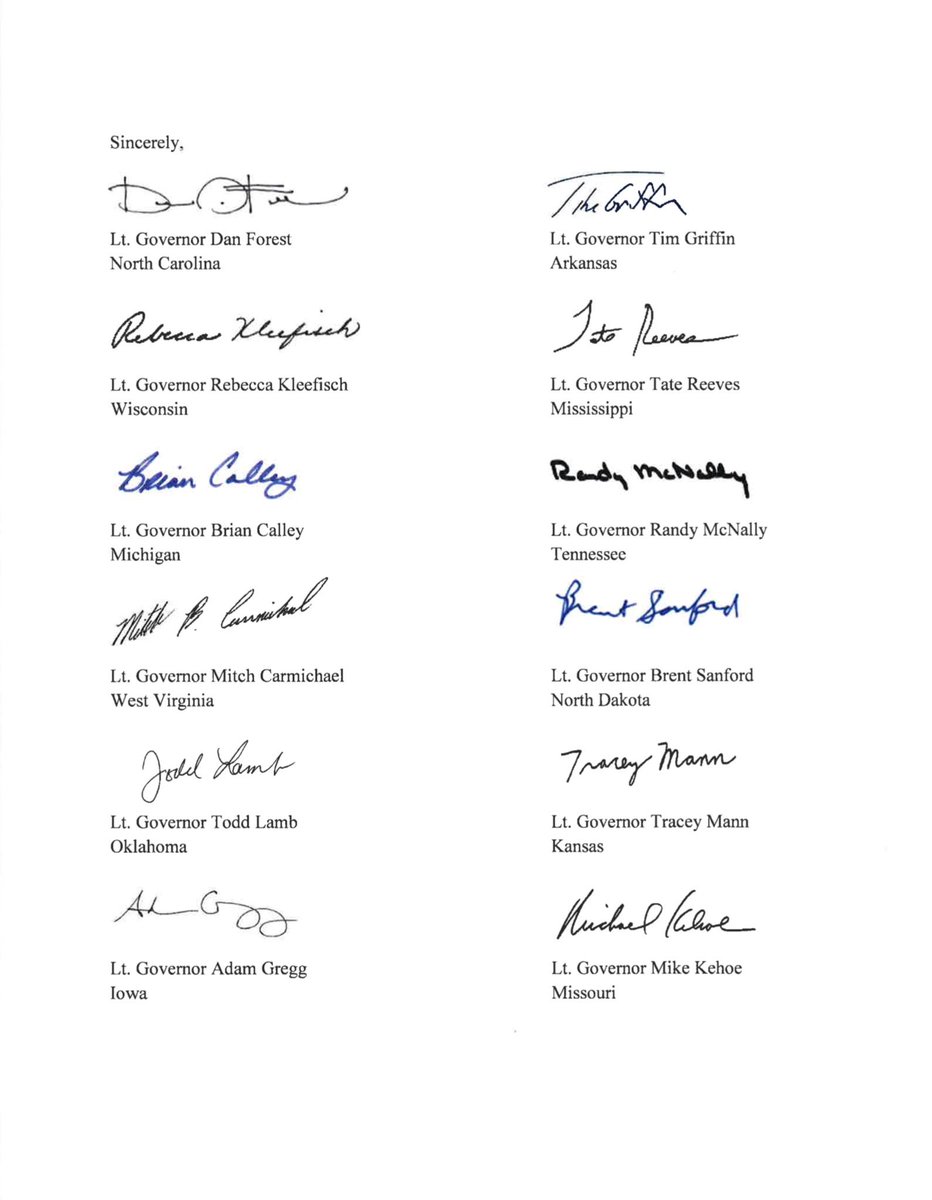 Sincerely,
Dan Forest
Lt. Governor Dan Forest
North Carolina
Tim Griffin
Lt. Governor Tim Griffin
Arkansas
Rebecca Kleefisch
Lt. Governor Rebecca Kleefisch
Wisconsin
Tate Reeves
Lt. Governor Tate Reeves
Mississippi
Brian Calley
Lt. Governor Brian Calley
Michigan
Randy McNally
Lt. Governor Randy McNally
Tennessee
Mitch B. Carmichael
Lt. Governor Mitch Carmichael
West Virginia
Brent Sanford
Lt. Governor Brent Sanford
North Dakota
Todd Lamb
Lt. Governor Todd Lamb
Oklahoma
Tracey Mann
Lt. Governor Tracey Mann
Kansas
Adam Gregg
Lt. Governor Adam Gregg
Iowa
Michael Kehoe
Lt. Governor Mike Kehoe
Missouri